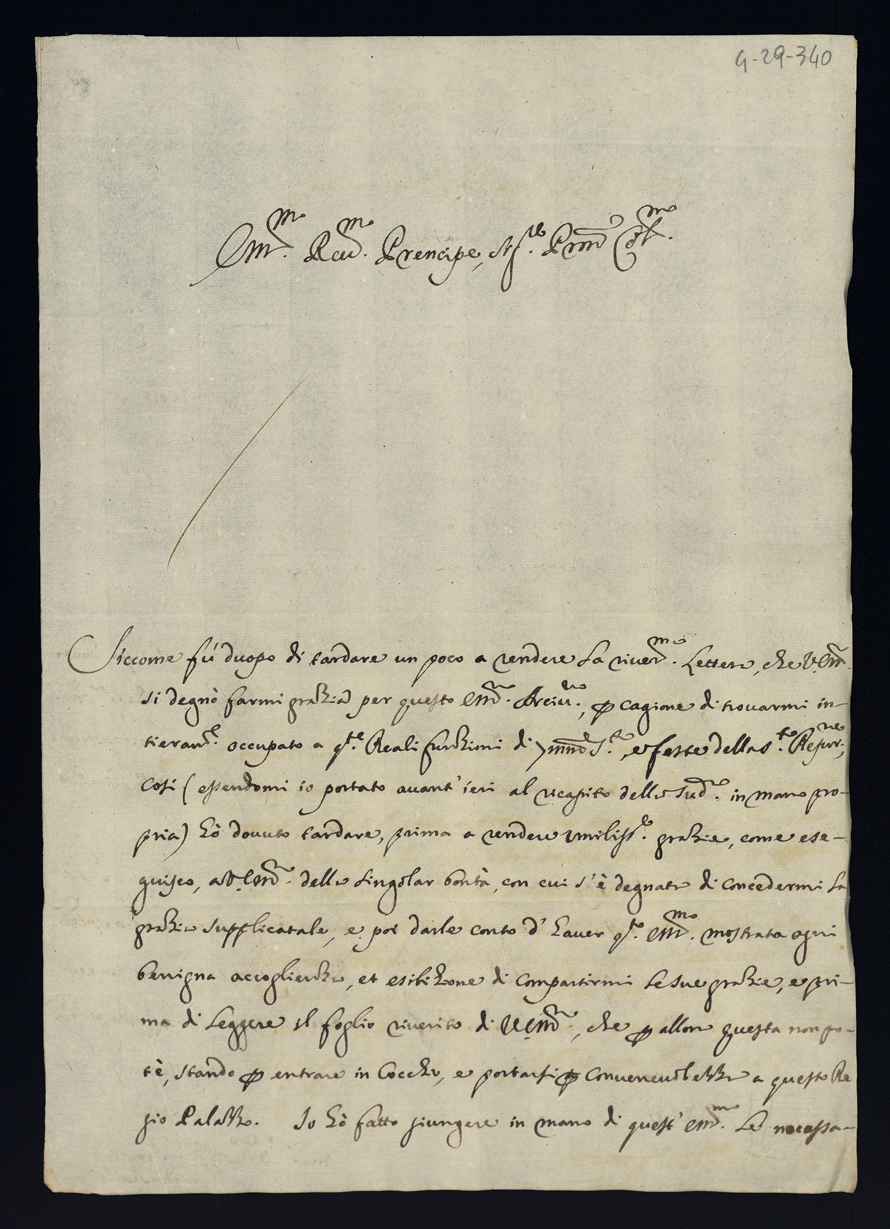 4-29-340
Em.mo Reu.mo Prencipe, Sig.re Pron Col.mo
Siccome fù duopo di tardare un poco a rendere la riuer.ma Lettera, che V.Em.
si degnò farmi grazia per questo Em. Arciu.o, p cagione di trouarmi in-
tieram.e occupato a q.te Reali funzioni di S.ta, e feste della S.ta Resur.ne,
così (essendomi io portato auant'ieri al recapito della sud.a in mano pro-
pria) hò douuto tardare, prima a rendere umiliss.e grazie, come ese-
guisco, a V.Em. della singolar bontà, con cui s'è degnata di concedermi la
grazia supplicatale, e poi darle conto d'hauer q.to Em.mo mostrata ogni
benigna accoglienza, et esibizione di compartirmi le sue grazie, e pri-
ma di leggere il foglio riuerito di V.Em., che p allora questa non po-
tè, stando p entrare in Cocchio, e portarsi p conueneuolezza a questo Re
gio Palazzo. Io hò fatto giungere in mano di quest'Em.mo le necessa-